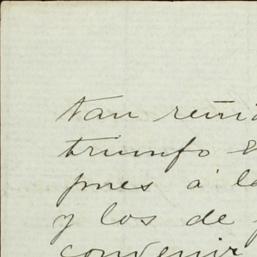 tan reñid
triunfo e
pues á la
y los de
convenir